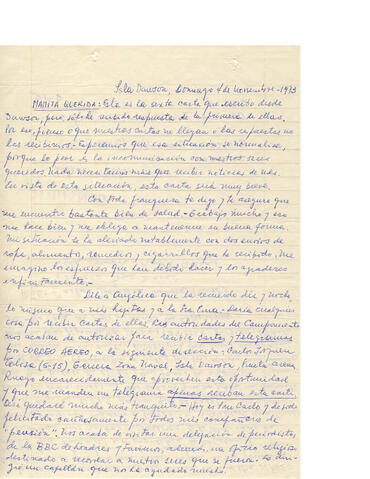 Isla Dawson, Domingo 4 de Noviembre - 1973
MAMITA QUERIDA: Esta es la sexta carta que escribo desde
Dawson, pero sólo he recibido respuesta de la primera de ellas.
Por eso, pienso que nuestras cartas no llegan o las respuestas no
las recibimos. Esperamos que esa situación se normalice,
porque lo peor es la incomunicación con nuestros seres
queridos. Nada necesitamos más que recibir noticias de uds.
En vista de esta situación, esta carta será muy breve.
Con toda franqueza te digo y te aseguro que
me encuentro bastante bien de salud. Trabajo mucho y eso
me hace bien y me obliga a mantenerme en buena forma.
Mi situación se ha aliviado notablemente con dos envíos de
ropa, alimentos, remedios y cigarrillos que he recibido. Me
imagino los esfuerzos que han debido hacer y los agradezco
infinitamente.-
Dile a Angélica que la recuerdo día y noche
lo mismo que a mis hijitas y a la Ema. Daría cualquier
cosa por recibir cartas de ellas. Las autoridades del Campamento
nos acaban de autorizar para recibir cartas y telegramas
por CORREO AEREO, a la siguiente dirección: Carlos
(S-15), Tercera Zona Naval, Isla Dawson, Punta Arenas.
Ruego encarecidamente que aprovechen esta oportunidad
y que me manden un telegrama apenas reciban esta carta.
Así quedaré mucho más tranquilo.- Hoy es San Carlos y he sido
felicitado cariñosamente por todos mis compañeros de
"pensión". Nos acaba de visitar una delegación de periodistas
de la BBC de Londres y tuvimos, además, un oficio religioso
destinado a recordar a nuestros seres que se fueron. Lo
un capellán que nos ha ayudado mucho.